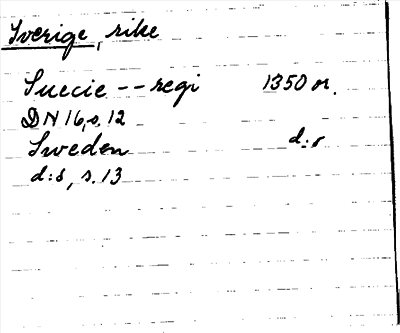 Sverige, rike
Suecie -- regi 1350 or.
DN 16, s. 12
Sweden d:s
d:s, s. 13